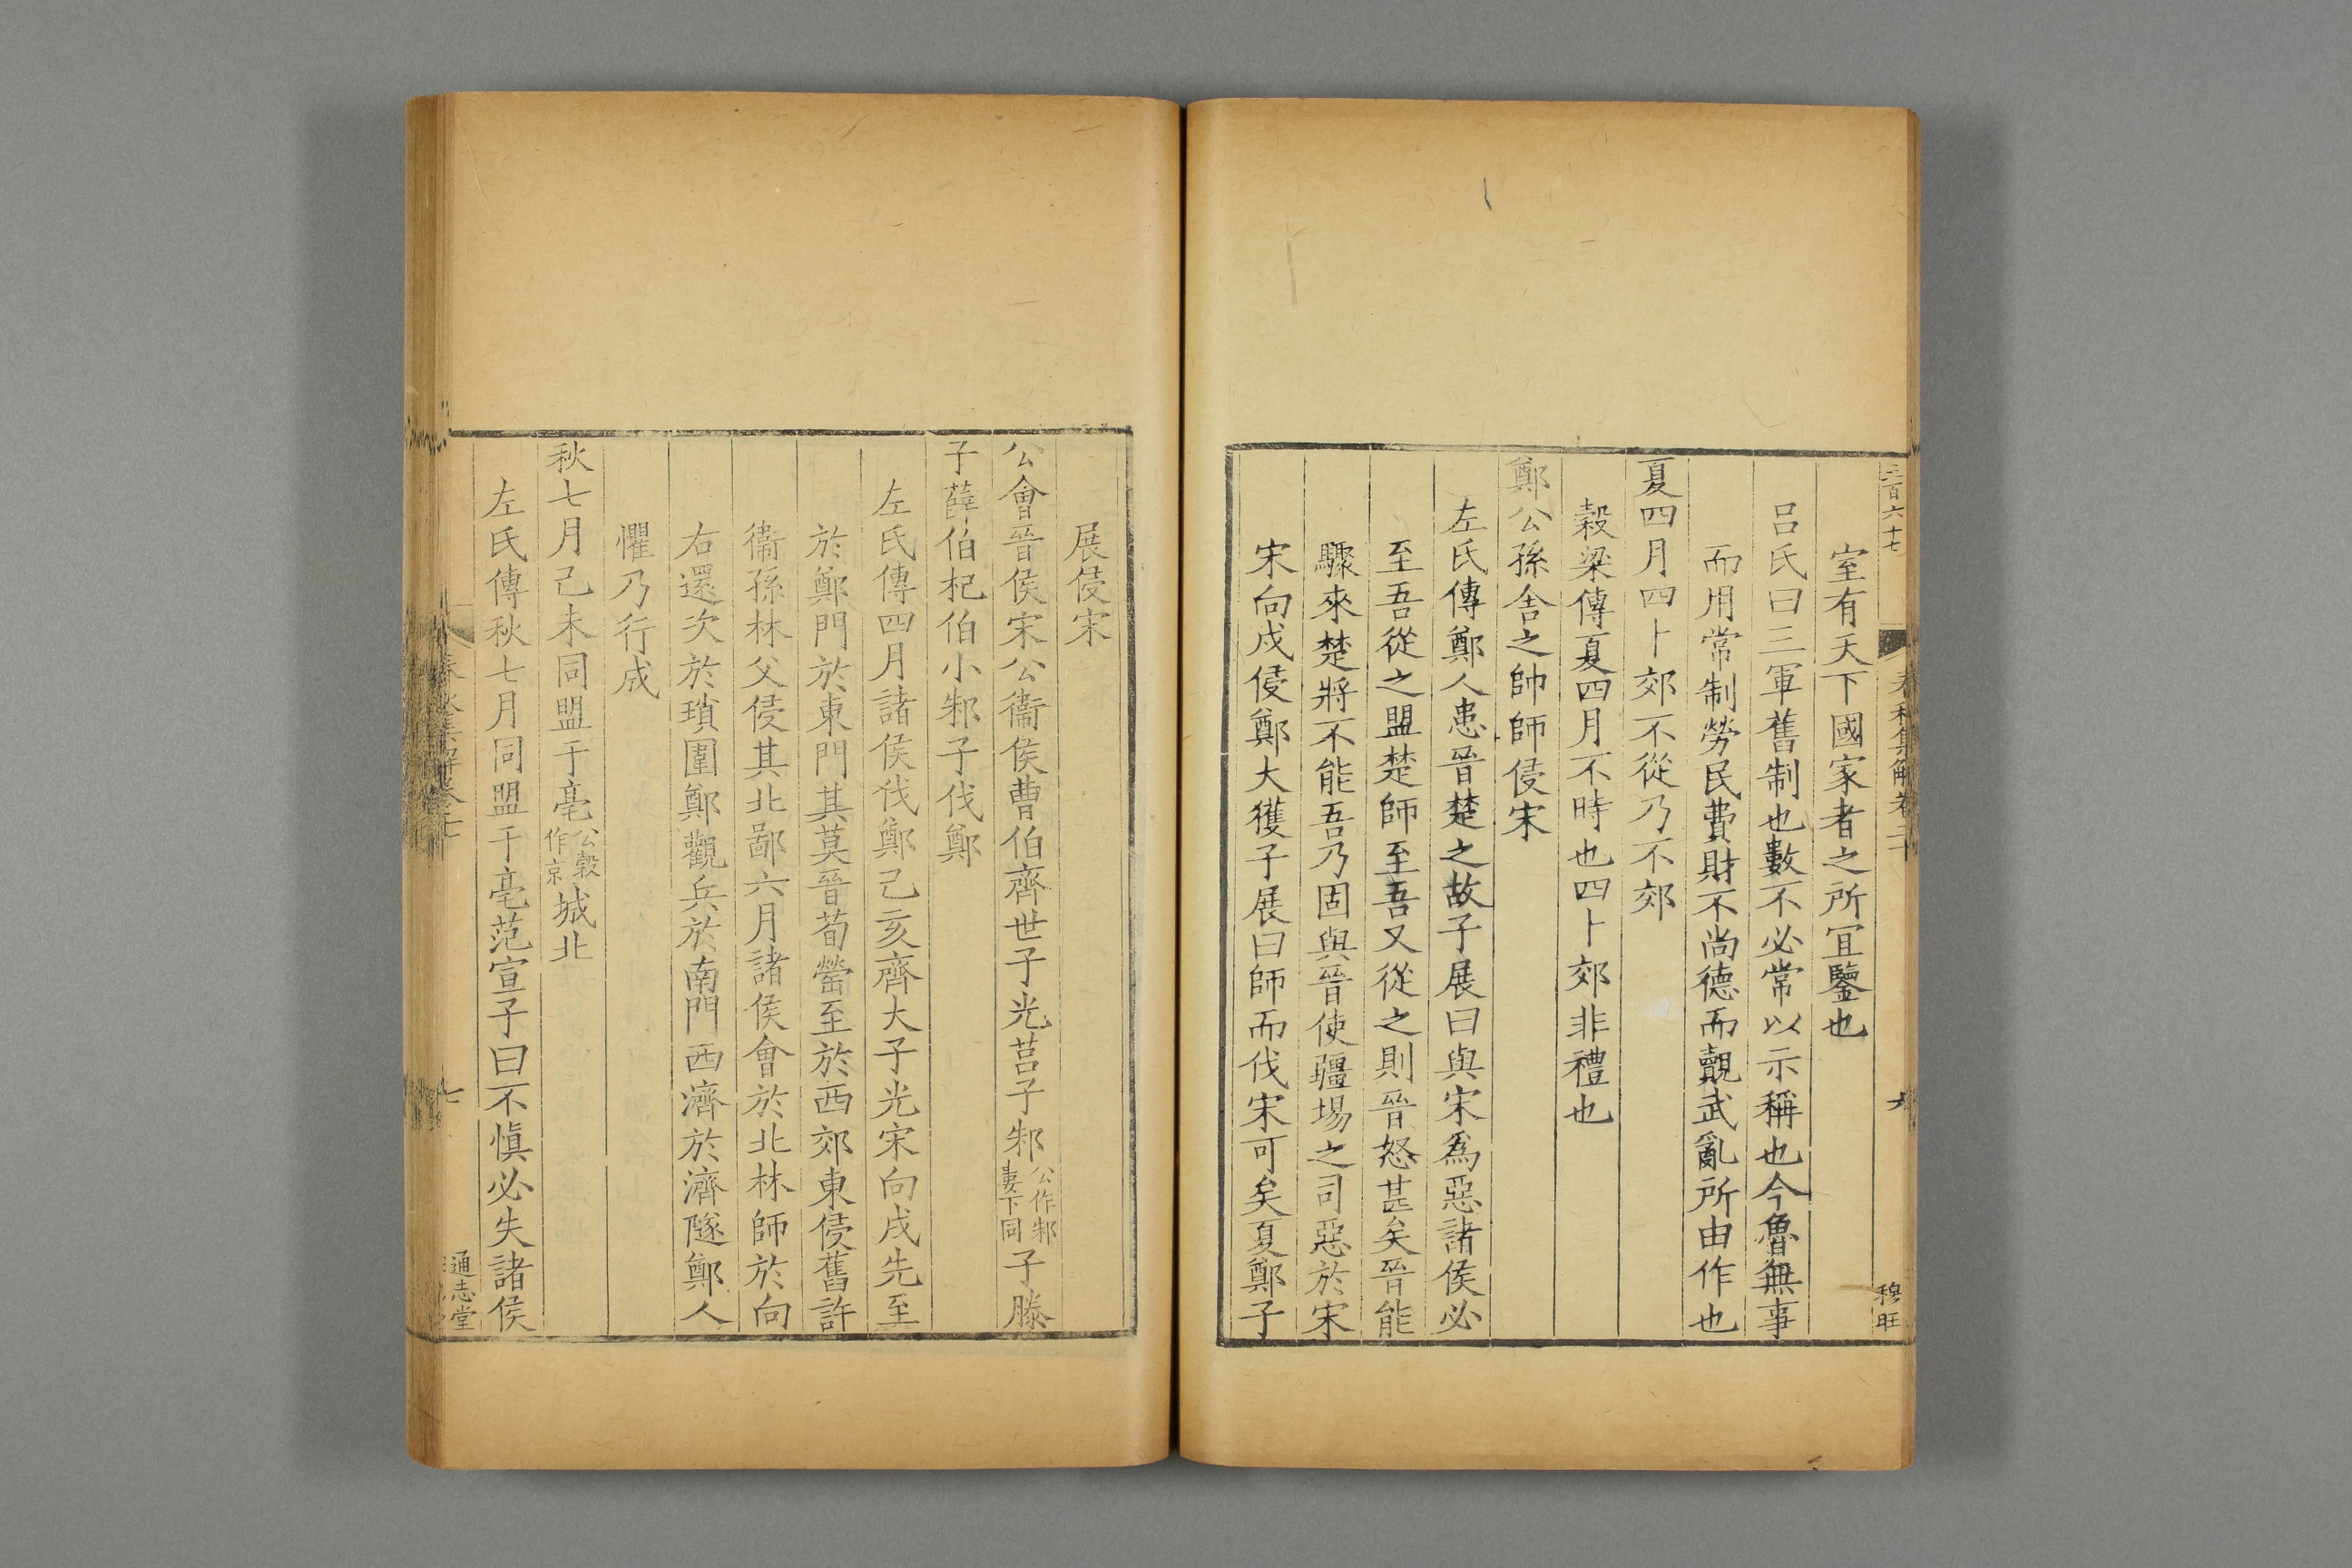 三百六十七
春秋集解卷二十
六
穆旺
室有天下國家者之所宜鑒也
吕氏曰三軍舊制也數不必常以示稱也今魯無事
而用常制勞民費財不尚德而覿武亂所由作也
夏四月四卜郊不從乃不郊
穀梁傳夏四月不時也四卜郊非禮也
鄭公孫舍之帥師侵宋
左氏傳鄭人患晉楚之故子展曰與宋爲惡諸侯必
至吾從之盟楚師至吾又從之則晉怒甚矣晉能
驟來楚將不能吾乃固與晉使疆埸之司惡於宋
宋向戍侵鄭大獲子展曰師而伐宋可矣夏鄭子
展侵宋
公會晉侯宋公衞侯曹伯齊世子光莒子邾公作邾婁下同子滕
子薛伯杞伯小邾子伐鄭
左氏傳四月諸侯伐鄭己亥齊大子光宋向戍先至
於鄭門於東門其莫晉荀罃至於西郊東侵舊許
衞孫林父侵其北鄙六月諸侯會於北林師於向
右還次於瑣圍鄭觀兵於南門西濟於濟隧鄭人
懼乃行成
秋七月己未同盟于亳公穀作京城北
左氏傳秋七月同盟于亳范宣子曰不愼必失諸侯
春秋集解卷二十
七
通志堂